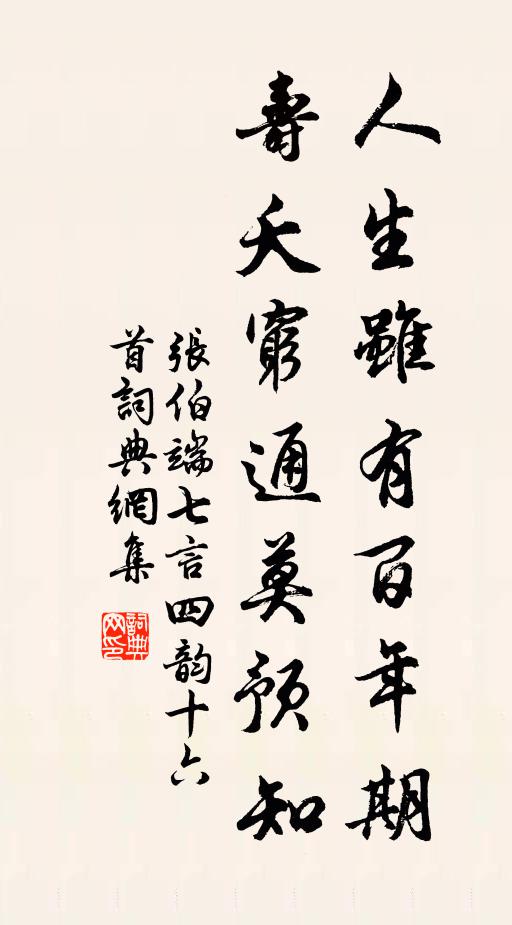 人生雖有百年期
壽夭窮通莫預知
張伯端七言四韵十六
首詞典網集
詞典
网印